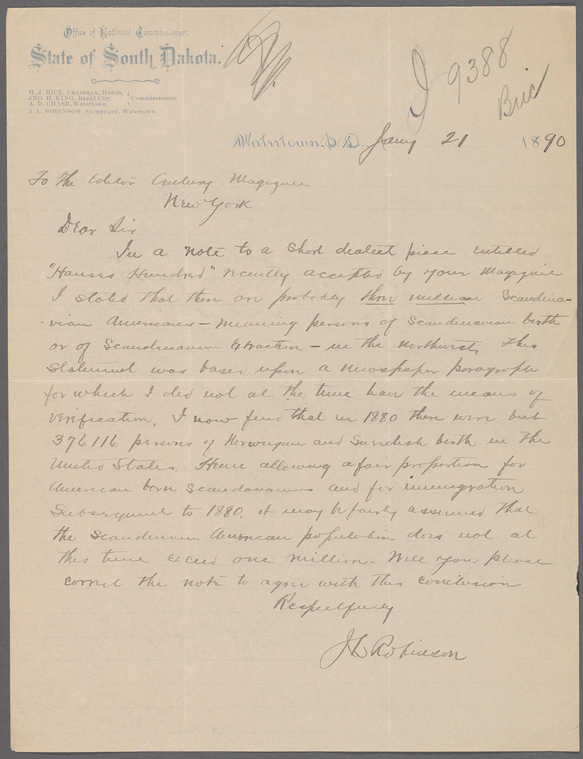 Office of National Commissioners
State of South Dakota.
H. J. RICE, CHAIRMAN, Huron,
JNO. H. KING, Rapid City, Commissioners.
A. D. CHASE, Watertown,
J. L. ROBINSON, SECRETARY, Watertown.
I 9388
Bric
Watertown, S.D. Jany 21 1890
To the Editor Century Magazine
New York
Dear Sir
In a note to a short dialect piece entitled
"Hanses Hundred" recently accepted by your Magazine
I stated that there are probably three million Scandina-
-vian Americans - meaning persons of Scandinavian birth
or of Scandinavian Extraction - in the northwest. This
statement was based upon a newspaper paragraph
for which I did not at the time have the means of
verification. I now find that in 1880 there were but
376116 persons of Norwegian and Swedish birth in the
United States. Hence allowing a fair proportion for
American born Scandanavians and for immigration
subsequent to 1880, it may be fairly assumed that
the Scandinavian American population does not at
this time exceed one million. Will you please
correct the note to agree with this conclusion
Respectfully
J L Robinson